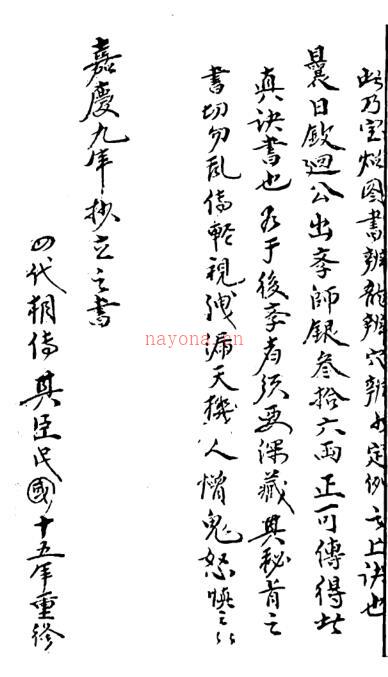 此乃定㷔图書辨龍辨穴辨水定例之上诀也
曩日欽迴公出孝師銀叁拾六両正可傳得此
真诀書也 爲于後孝者须要深藏其秘肯之
書切勿乱傳輕視洩漏天機人憎鬼怒慎之之
嘉慶九年抄立之書
四代相傳 其臣民國十五年重修
nayona.cn